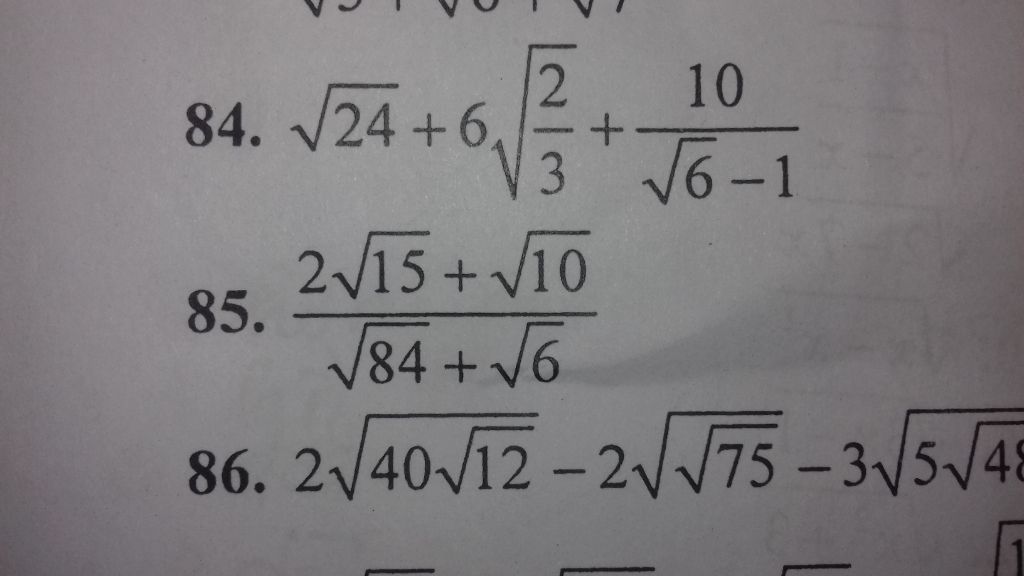 84. √24 + 6√(2/3) + 10/(√6 − 1)
85. (2√15 + √10)/(√84 + √6)
86. 2√(40√12) − 2√(√75) − 3√(5√48